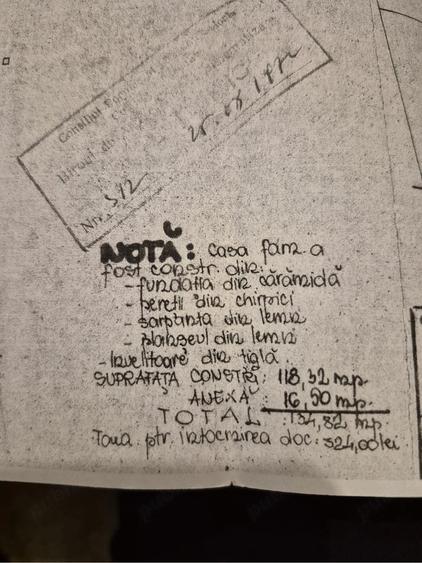 Consiliul
Biroul de
Nr. 512
NOTĂ: casa fam. a
fost constr. din:
- fundatia din cărămidă
- peretii din chirpici
- sarpanta din lemn
- planseul din lemn
- Invelitoare din tiglă.
SUPRAFAȚA CONSTR: 118,32 mp.
ANEXĂ: 16,50 mp.
TOTAL: 134,82 mp.
Taxa ptr. intocmirea doc: 324,00 lei